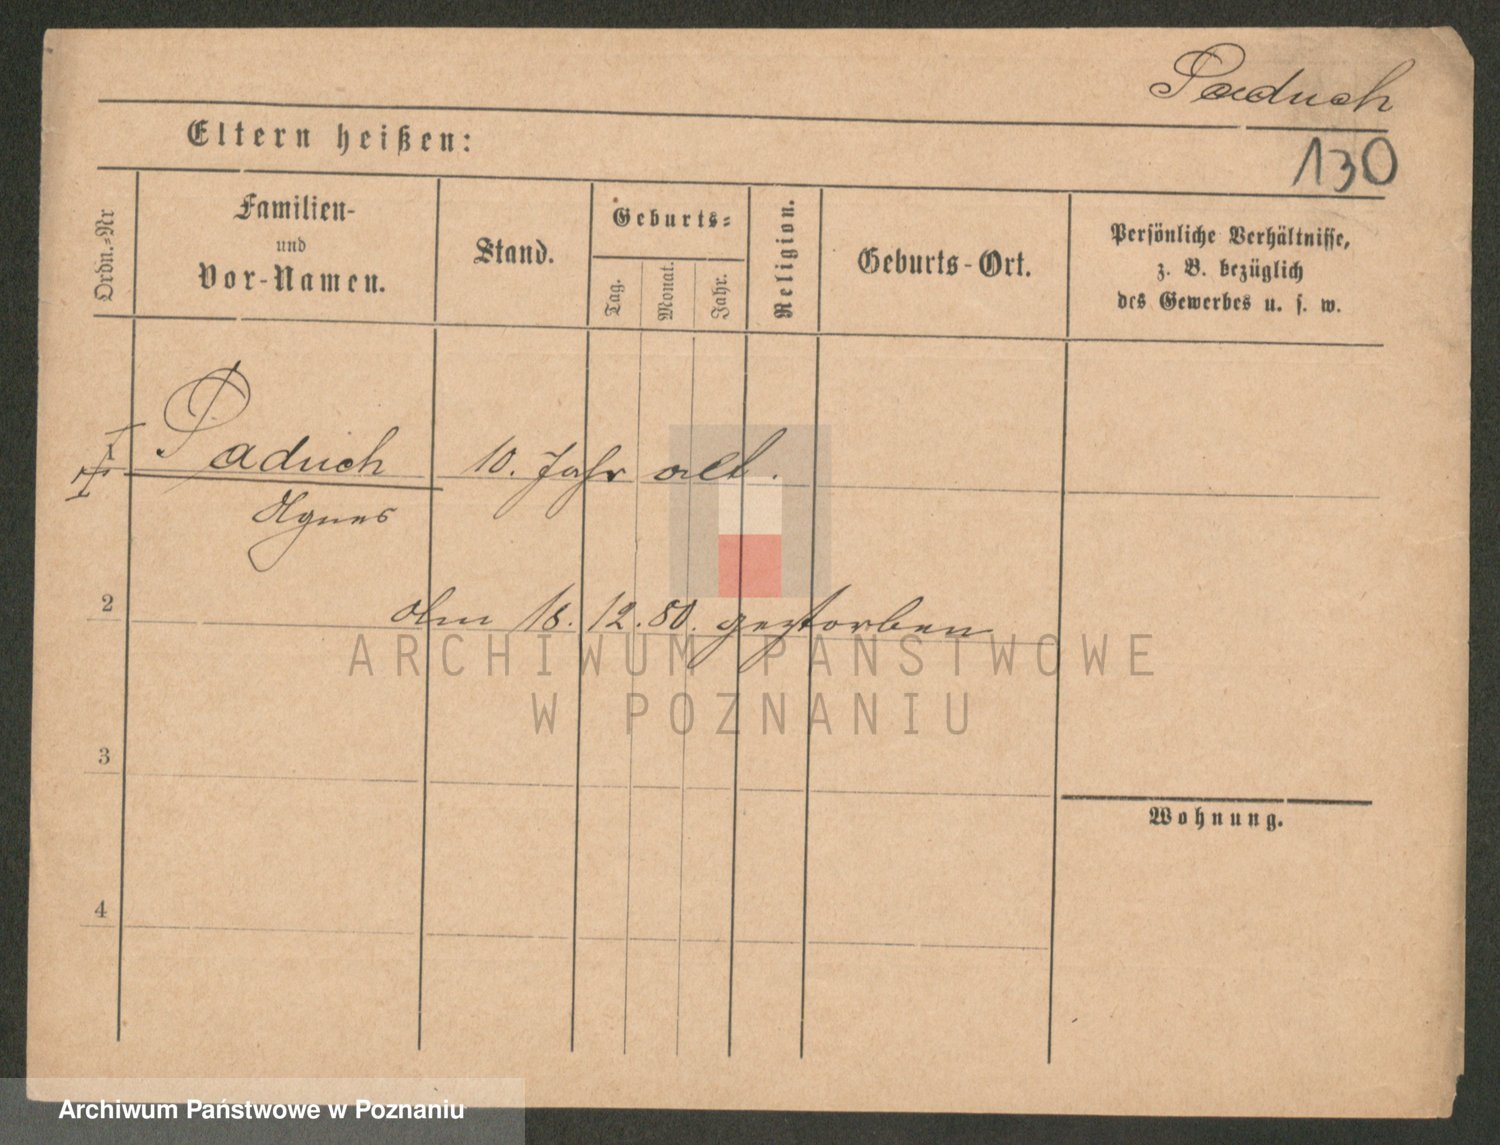 Paduch
Eltern heißen:
130
Ordn.-Nr
Familien-
und
Vor-Namen.
Stand.
Geburts-
Tag.
Monat.
Jahr.
Religion.
Geburts-Ort.
Persönliche Verhältnisse,
z. B. bezüglich
des Gewerbes u. s. w.
Paduch 10. Jahr alt.
Agnes
2 Am 18. 12. 80. gestorben
ARCHIWUM PAŃSTWOWE
W POZNANIU
3
Wohnung.
4
Archiwum Państwowe w Poznaniu